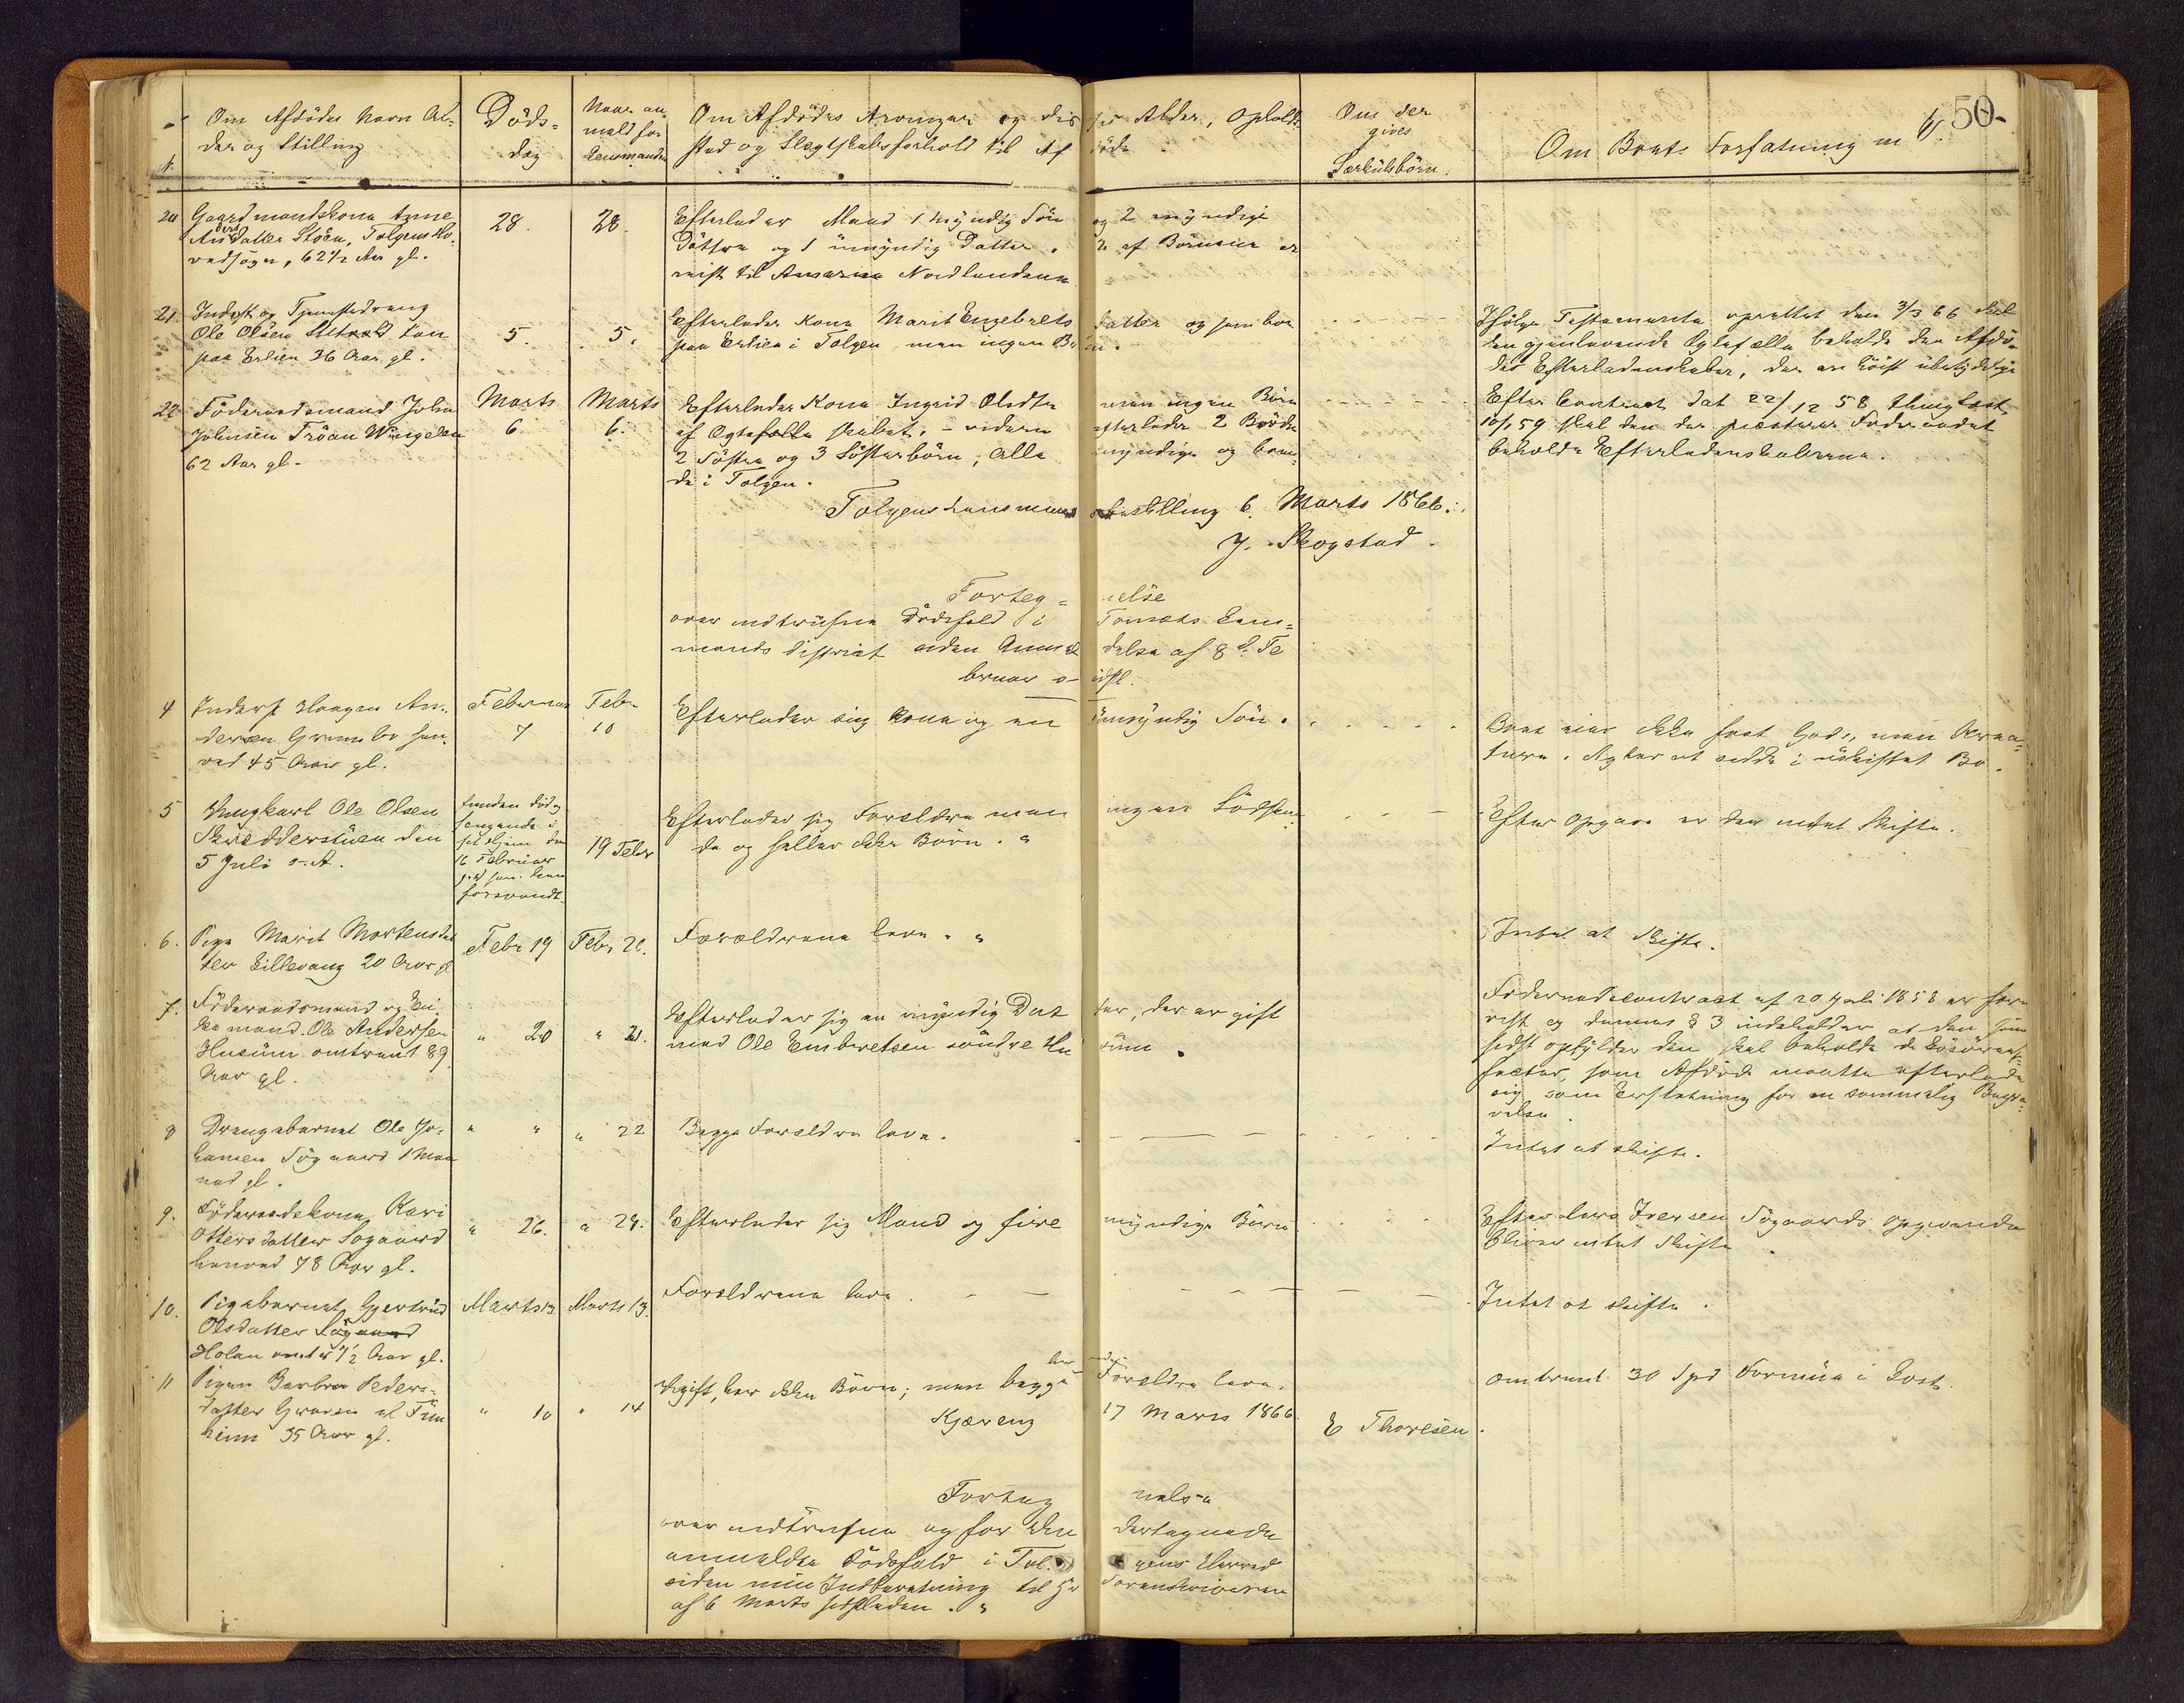 50.
Om Afdödes Navn Al-
der og Stilling
Döds-
dag
Naar an-
meldt for
Lensmanden
Om Afdödes Arvinger og disses Alder, Opholds-
sted og Slægtskabsforhold til Afdöde.
Om der
gives
Særkulsbörn.
Om Boets Forfatning m.v.
20 Gaardmandskone Anne
Andersdatter Stöen, Tolgens Ho-
vedsogn, 62½ Aar gl.
28.
28.
Efterlader Mand 1 myndig Sön og 2 myndige
Döttre og 1 umyndig Datter. 2 af Börnene er
reist til Nordlandene
21. Inderst og Tjenestedreng
Ole Olsen
paa Erlien 36 Aar gl.
5.
5.
Efterlader Kone Marit Engebretsdatter og som bor
paa Erlien i Tolgen, men ingen Börn.
Ifölge Testamente oprettet den 3/3 66 skal
den gjenlevende Ægtefælle beholde den Afdö-
des Efterladenskaber, der ere höist ubetydelige
22 Föderaadsmand John
Johnsen Tröan Wingelen
62 Aar gl.
Marts
6.
Marts
6.
Efterlader Kone Ingrid Olsdtr men ingen Börn
af Ægteskabet, - videre efterlader 2 Brödre
2 Söstre og 3 Sösterbörn, alle myndige og boen-
de i Tolgen.
Efter Contract dat 22/12 58 thinglæst
10/1 59 skal den der præsterer Föderaadet
beholde Efterladenskaberne.
Tolgens Lensmandsbestilling 6. Marts 1866.
J. Skogstad.
Fortegnelse
over indtrufne Dödsfald i Tonsets Lens-
mands District siden Anmeldelse af 8de Fe-
bruar sidstl.
4 Inderst Haagen An-
dersen Grambo
45 Aar gl.
Februar
7
Febr
10
Efterlader sig Kone og en umyndig Sön.
Boet eier ikke fast Gods, men Krea-
turer. Agter at sidde i uskiftet Bo.
5 Ungkarl Ole Olsen
Skredderstuen den
5 Juli s. A.
funden död
hengende i
sit Hjem den
16 Februar
forsvandt.
19 Febr
Efterlader sig Forældre men ingen Södsken-
de og heller ikke Börn.
Efter Opgave er der intet Skifte.
6. Pige Marit Mortensdat-
ter Lillevang 20 Aar gl
Febr 19
Febr 20.
Forældrene leve.
Intet at skifte.
7. Föderaadsmand og En-
kemand Ole Andersen
Husum omtrent 89
Aar gl.
" 20
" 21.
Efterlader sig en myndig Datter, der er gift
med Ole Embretsen söndre Husum.
Föderaadscontract af 20 Juli 1858 er fore-
vist og dennes § 3 indeholder at den som
sidst opfylder den skal beholde de Lösöreef-
fecter, som Afdöde maatte efterlade
sig som Erstatning for en sömmelig Begra-
velse.
8 Drengebarnet Ole Jo-
hansen Sögaard 1 Maa-
ned gl.
" "
" 22
Begge Forældre leve.
Intet at skifte.
9. Föderaadskone Kari
Ottersdatter Sogaard
78 Aar gl.
" 26.
" 28.
Efterlader sig Mand og fire myndige Börn
Efter Iversen Sögaards Opgivende
bliver intet Skifte
10. Pigebarnet Gjertrud
Olsdatter Sögaard
Holen ½ Aar gl.
Marts 13.
Marts 13.
Forældrene leve.
Intet at skifte.
11 Pigen Barbro Peders-
datter
35 Aar gl.
" 10
" 14
Ugift, har ikke Börn; men begge Forældre leve.
omtrent 30 Spd Formue i Löst.
Kjæreng 17 Marts 1866.
E Thoresen.
Fortegnelse
over indtrufne og for Undertegnede
anmeldte Dödsfald i Tolgens Herred
siden min Indberetning til Hr Sorenskriveren
af 6 Marts sidstleden.